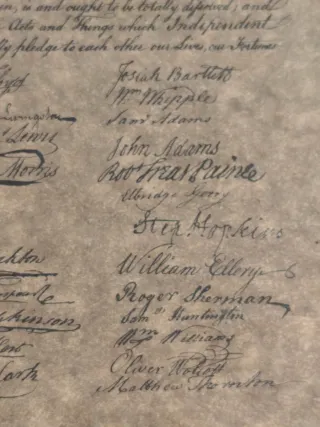 , is and ought to be totally dissolved; and
Acts and Things which Independent
pledge to each other our Lives, our Fortunes
Josiah Bartlett
Wm Whipple
Saml Adams
Lewis
John Adams
Morris
Robt Treat Paine
Elbridge Gerry
Step Hopkins
William Ellery
Roger Sherman
Saml Huntington
Wm Williams
Oliver Wolcott
Matthew Thornton